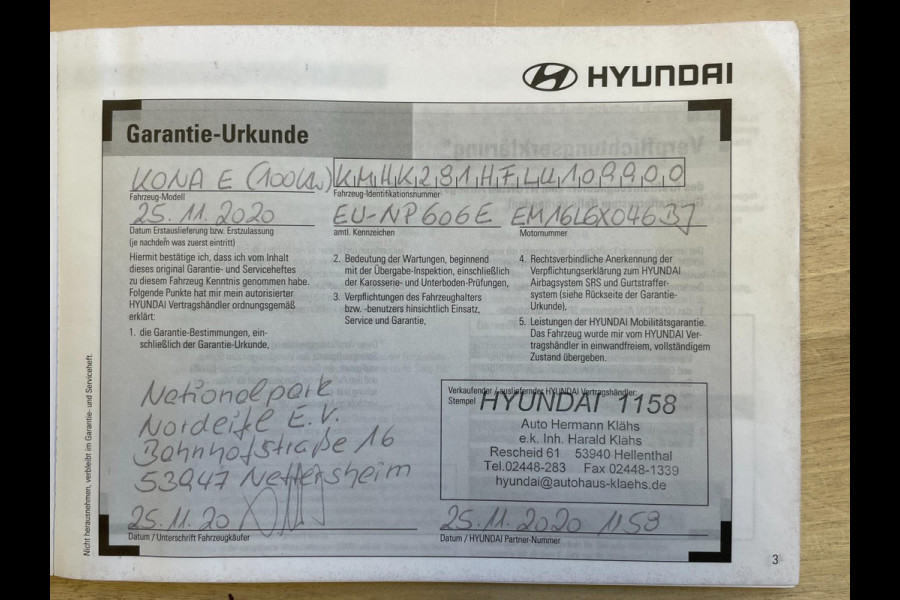 HYUNDAI
Garantie-Urkunde
KONA E (100KW) KMHK281HFLU109900
Fahrzeug-Modell Fahrzeug-Identifikationsnummer
25.11.2020 EU-NP606E EM16L6X046BJ
Datum Erstauslieferung bzw. Erstzulassung amtl. Kennzeichen Motornummer
(je nachdem was zuerst eintritt)
Hiermit bestätige ich, dass ich vom Inhalt
dieses original Garantie- und Serviceheftes
zu diesem Fahrzeug Kenntnis genommen habe.
Folgende Punkte hat mir mein autorisierter
HYUNDAI Vertragshändler ordnungsgemäß
erklärt:
1. die Garantie-Bestimmungen, ein-
schließlich der Garantie-Urkunde,
2. Bedeutung der Wartungen, beginnend
mit der Übergabe-Inspektion, einschließlich
der Karosserie- und Unterboden-Prüfungen,
3. Verpflichtungen des Fahrzeughalters
bzw. -benutzers hinsichtlich Einsatz,
Service und Garantie,
4. Rechtsverbindliche Anerkennung der
Verpflichtungserklärung zum HYUNDAI
Airbagsystem SRS und Gurtstraffer-
system (siehe Rückseite der Garantie-
Urkunde),
5. Leistungen der HYUNDAI Mobilitätsgarantie.
Das Fahrzeug wurde mir vom HYUNDAI Ver-
tragshändler in einwandfreiem, vollständigem
Zustand übergeben.
Nationalpark
Nordeifel E.V.
Bahnhofstraße 16
53947 Nettersheim
25.11.20
Datum / Unterschrift Fahrzeugkäufer
Verkaufender / ausliefernder HYUNDAI Vertragshändler:
Stempel HYUNDAI 1158
Auto Hermann Klähs
e.k. Inh. Harald Klähs
Rescheid 61 53940 Hellenthal
Tel.02448-283 Fax 02448-1339
hyundai@autohaus-klaehs.de
25.11.2020 1158
Datum / HYUNDAI Partner-Nummer
Nicht herausnehmen, verbleibt im Garantie- und Serviceheft.
3